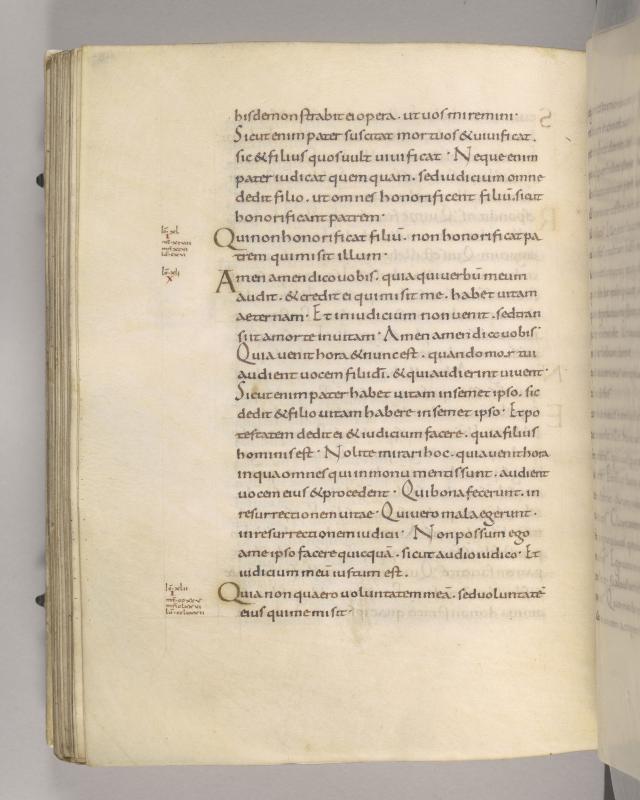 his demonstrabit ei opera · ut vos miremini ·
Sicut enim pater suscitat mortuos & vivificat ·
sic & filius quos vult vivificat · Neque enim
pater iudicat quemquam · sed iudicium omne
dedit filio · ut omnes honorificent filiū · sicut
honorificant patrem ·
Qui non honorificat filiū · non honorificat pa
trem qui misit illum ·
Amen amen dico vobis · quia qui verbū meum
audit · & credit ei qui misit me · habet vitam
aeternam · Et in iudicium non venit · sed tran
siit a morte in vitam · Amen amen dico vobis ·
Quia venit hora & nunc est · quando mortui
audient vocem filii dī · & qui audierint vivent ·
Sicut enim pater habet vitam in semet ipso · sic
dedit & filio vitam habere in semet ipso · Et po
testatem dedit ei & iudicium facere · quia filius
hominis est · Nolite mirari hoc · quia venit hora
in qua omnes qui in monumentis sunt · audient
vocem eius & procedent · Qui bona fecerunt · in
resurrectionem vitae · Qui vero mala egerunt ·
in resurrectionem iudicii · Non possum ego
a me ipso facere quicquā · sicut audio iudico · Et
iudicium meū iustum est ·
Quia non quaero voluntatem meā · sed voluntatē
eius qui me misit ·